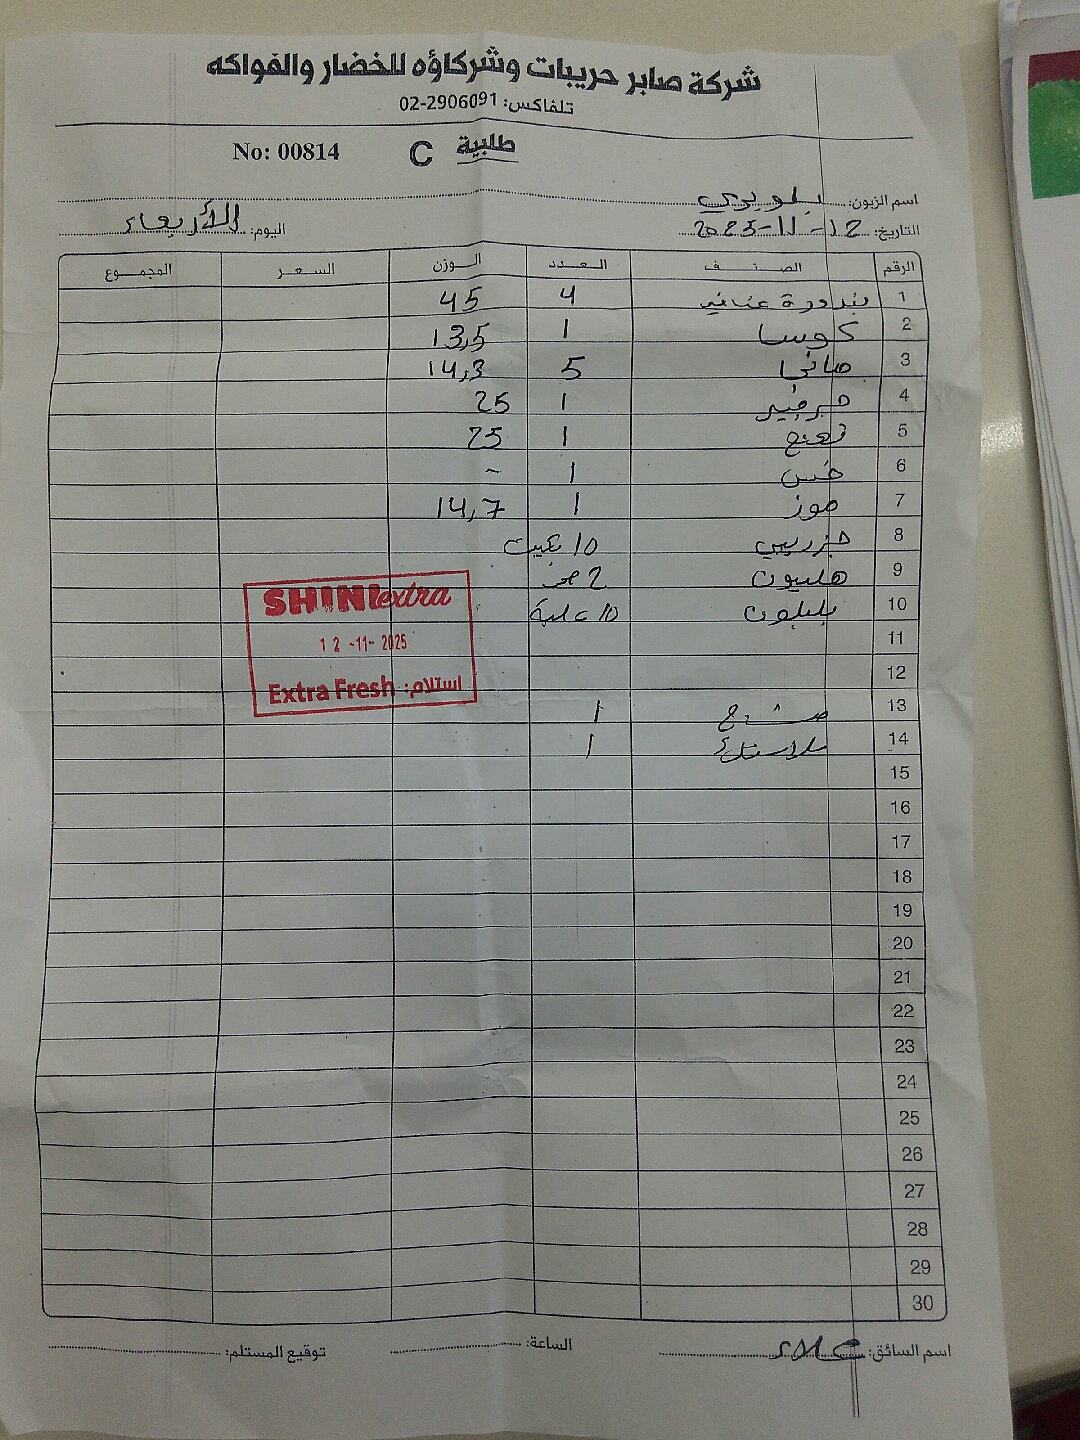 شركة صابر حريبات وشركاؤه للخضار والفواكه
تلفاكس: 02-2906091
طلبية C No: 00814
اسم الزبون:
التاريخ: 12-11-2025 اليوم: الأربعاء
الرقم الصنف العدد الوزن السعر المجموع
1 بندورة عناقيد 4 45
2 كوسا 1 13,5
3 5 14,3
4 1 25
5 نعنع 1 25
6 خس 1 -
7 موز 1 14,7
8 10
9 هليون 2
10 10 علبة
11
12
13 1
14 1
15
16
17
18
19
20
21
22
23
24
25
26
27
28
29
30
SHINI extra
12 -11- 2025
استلام: Extra Fresh
اسم السائق: علاء الساعة: توقيع المستلم: